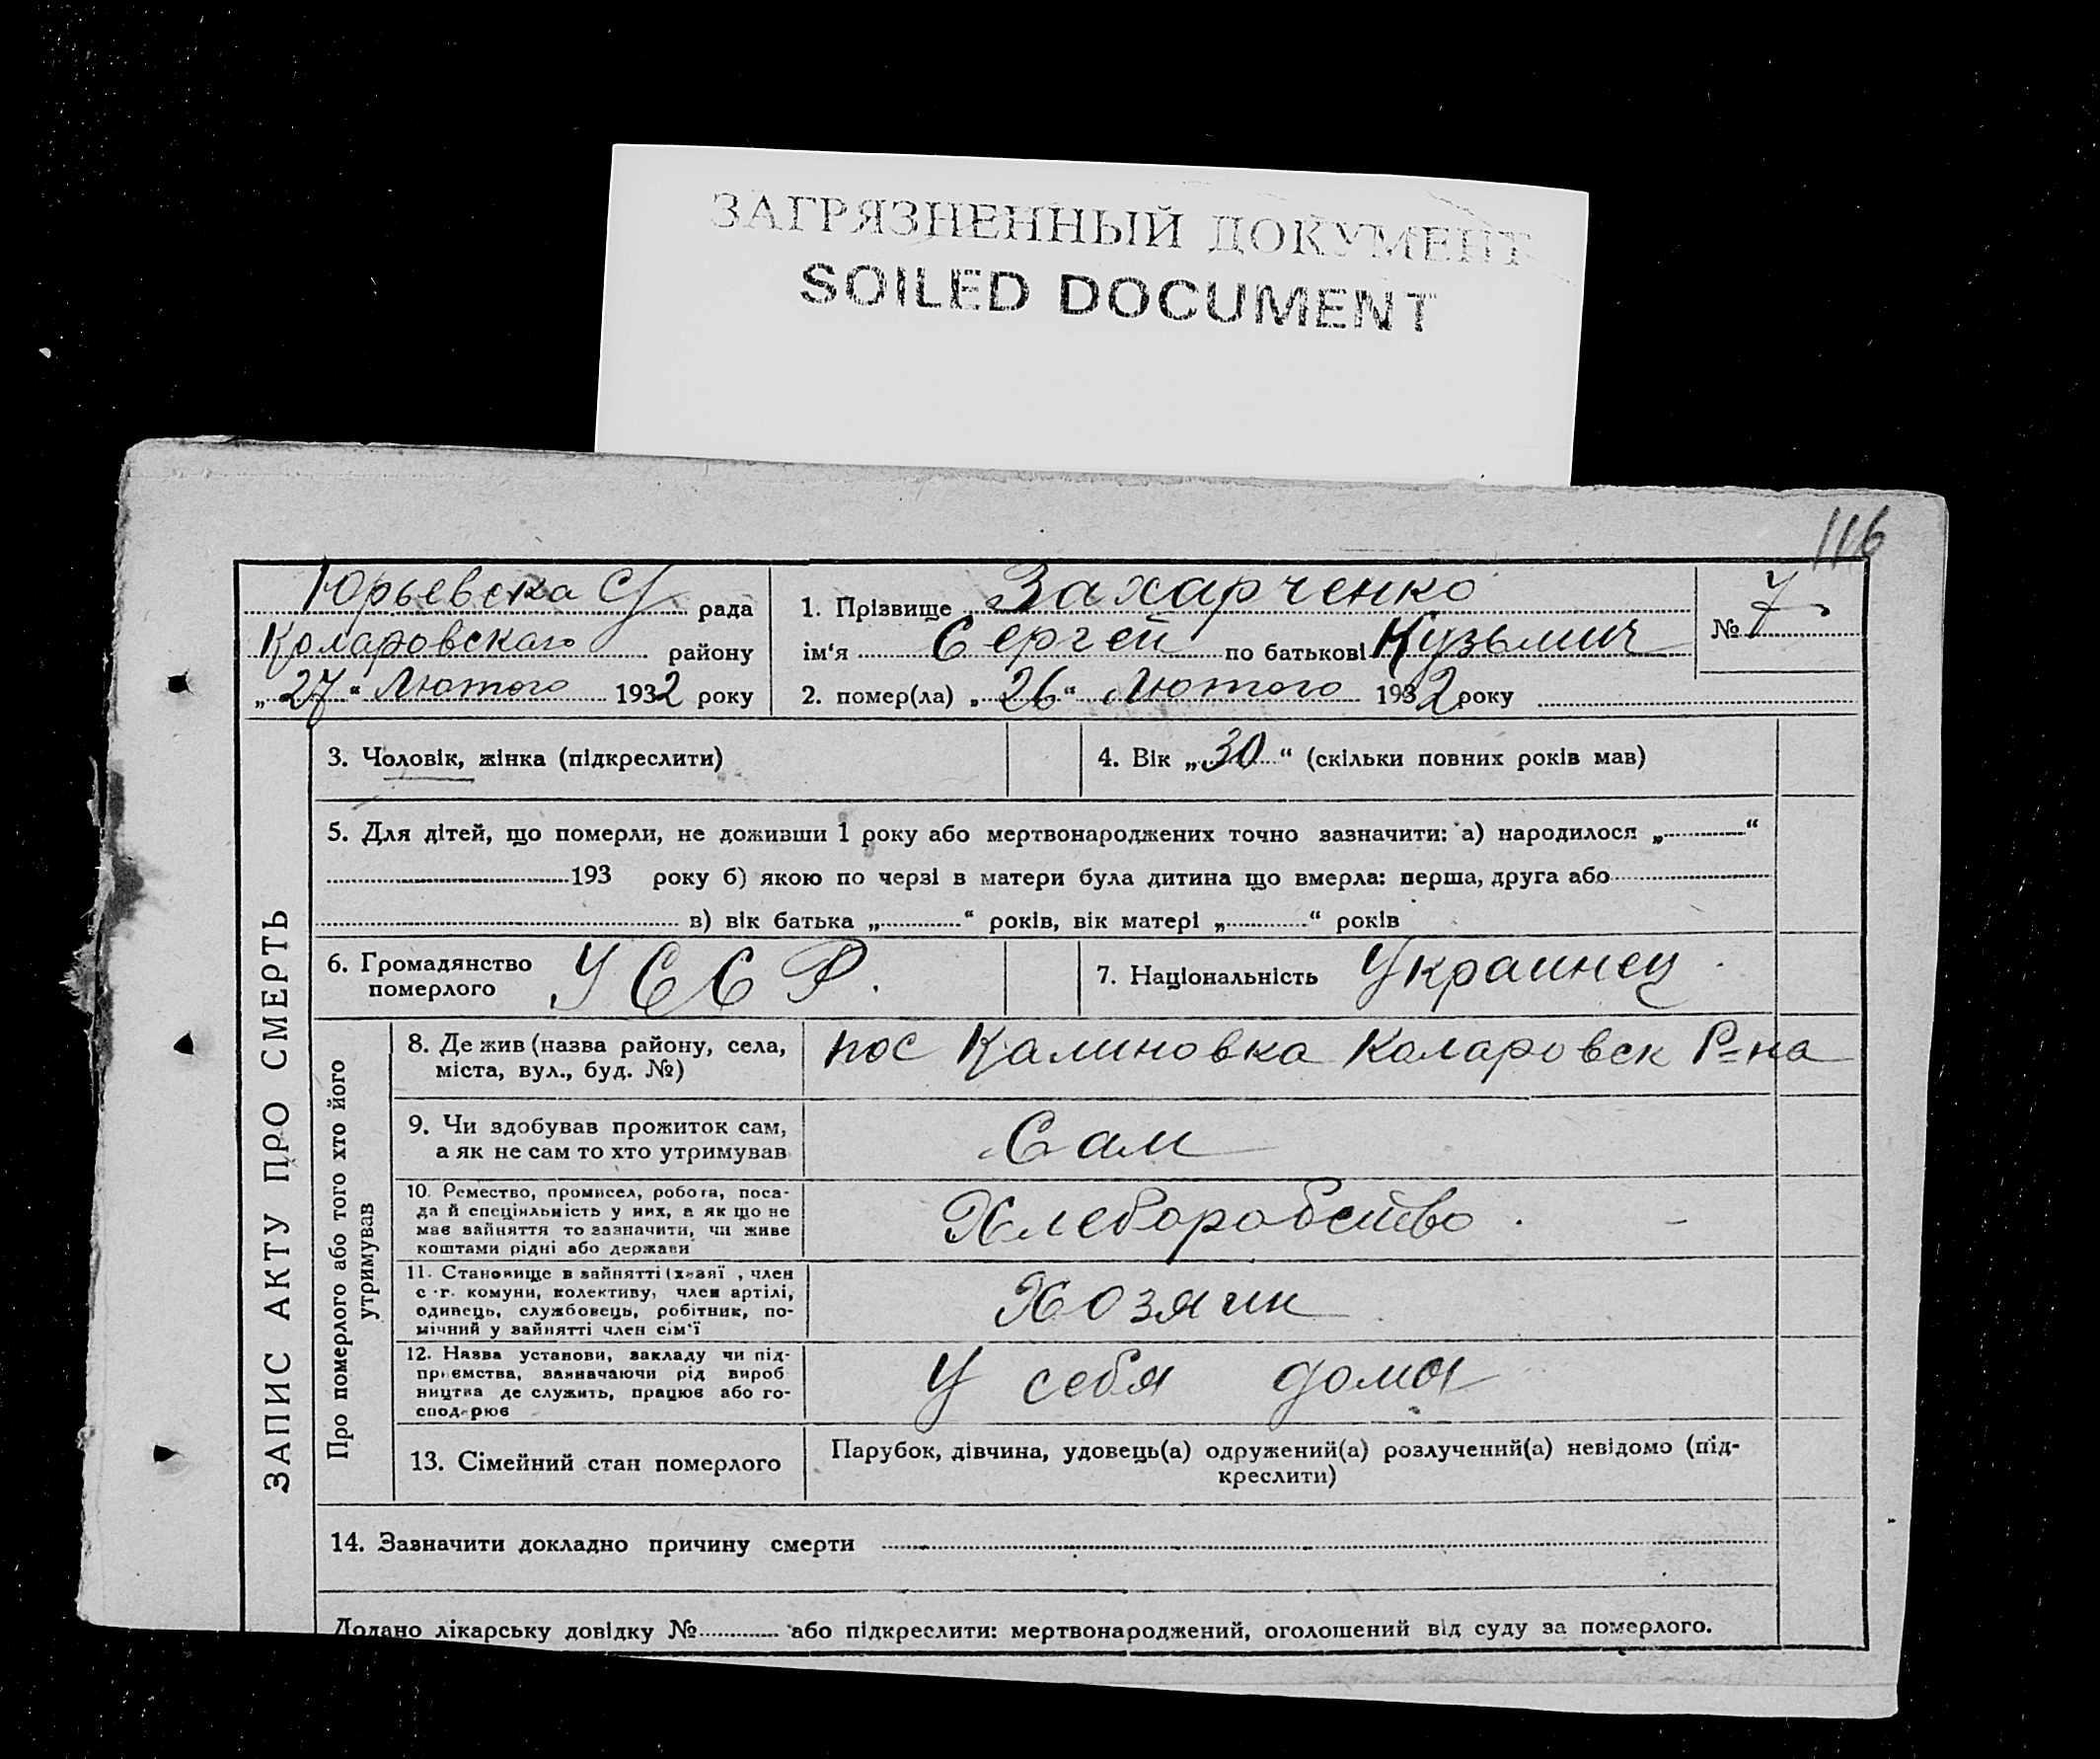 ЗАГРЯЗНЕННЫЙ ДОКУМЕНТ
SOILED DOCUMENT
116
Юрьевска С/ рада
Коларовскаго району
„27“ Лютого 1932 року
1. Прізвище Захарченко
ім'я Сергей по батькові Кузьмич
2. помер(ла) „26“ Лютого 1932 року
№ 7
ЗАПИС АКТУ ПРО СМЕРТЬ
3. Чоловік, жінка (підкреслити)
4. Вік „30“ (скільки повних років мав)
5. Для дітей, що померли, не доживши 1 року або мертвонароджених точно зазначити: а) народилося „............“
............193 року б) якою по черзі в матери була дитина що вмерла: перша, друга або............
............ в) вік батька „............“ років, вік матері „............“ років
6. Громадянство
померлого
УССР.
7. Національність Украинец
Про померлого або того хто його
утримував
8. Де жив (назва району, села,
міста, вул., буд. №)
пос Калиновка Коларовск Р=на
9. Чи здобував прожиток сам,
а як не сам то хто утримував
Сам
10. Ремество, промисел, робота, поса-
да й спеціяльність у них, а як що не
має зайняття то зазначити, чи живе
коштами рідні або держави
Хлеборобство.
11. Становище в зайнятті (хазяї , член
с.-г. комуни, колективу, член артілі,
одинець, службовець, робітник, по-
мічний у зайнятті член сім'ї
Хозяин
12. Назва установи, закладу чи під-
приємства, зазначаючи рід вироб
ництва де служить, працює або го-
сподарює
У себя дома
13. Сімейний стан померлого
Парубок, дівчина, удовець(а) одружений(а) розлучений(а) невідомо (під-
креслити)
14. Зазначити докладно причину смерти ............
Додано лікарську довідку №............ або підкреслити: мертвонароджений, оголошений від суду за померлого.